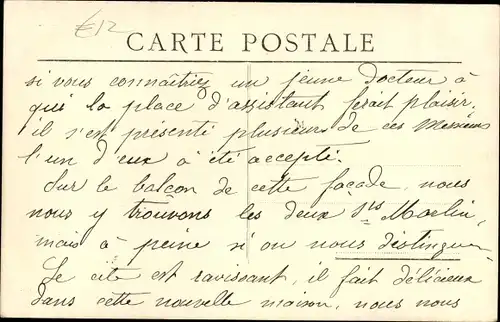 £12
CARTE POSTALE
si vous connaîtriez un jeune docteur à
qui la place d'assistant ferait plaisir,
il s'est présenté plusieurs de ces Messieurs
l'un d'eux a été accepté.
Sur le balcon de cette façade, nous
nous y trouvons les deux Drs
mais à peine si on nous distingue.
Le site est ravissant, il fait délicieux
dans cette nouvelle maison, nous nous